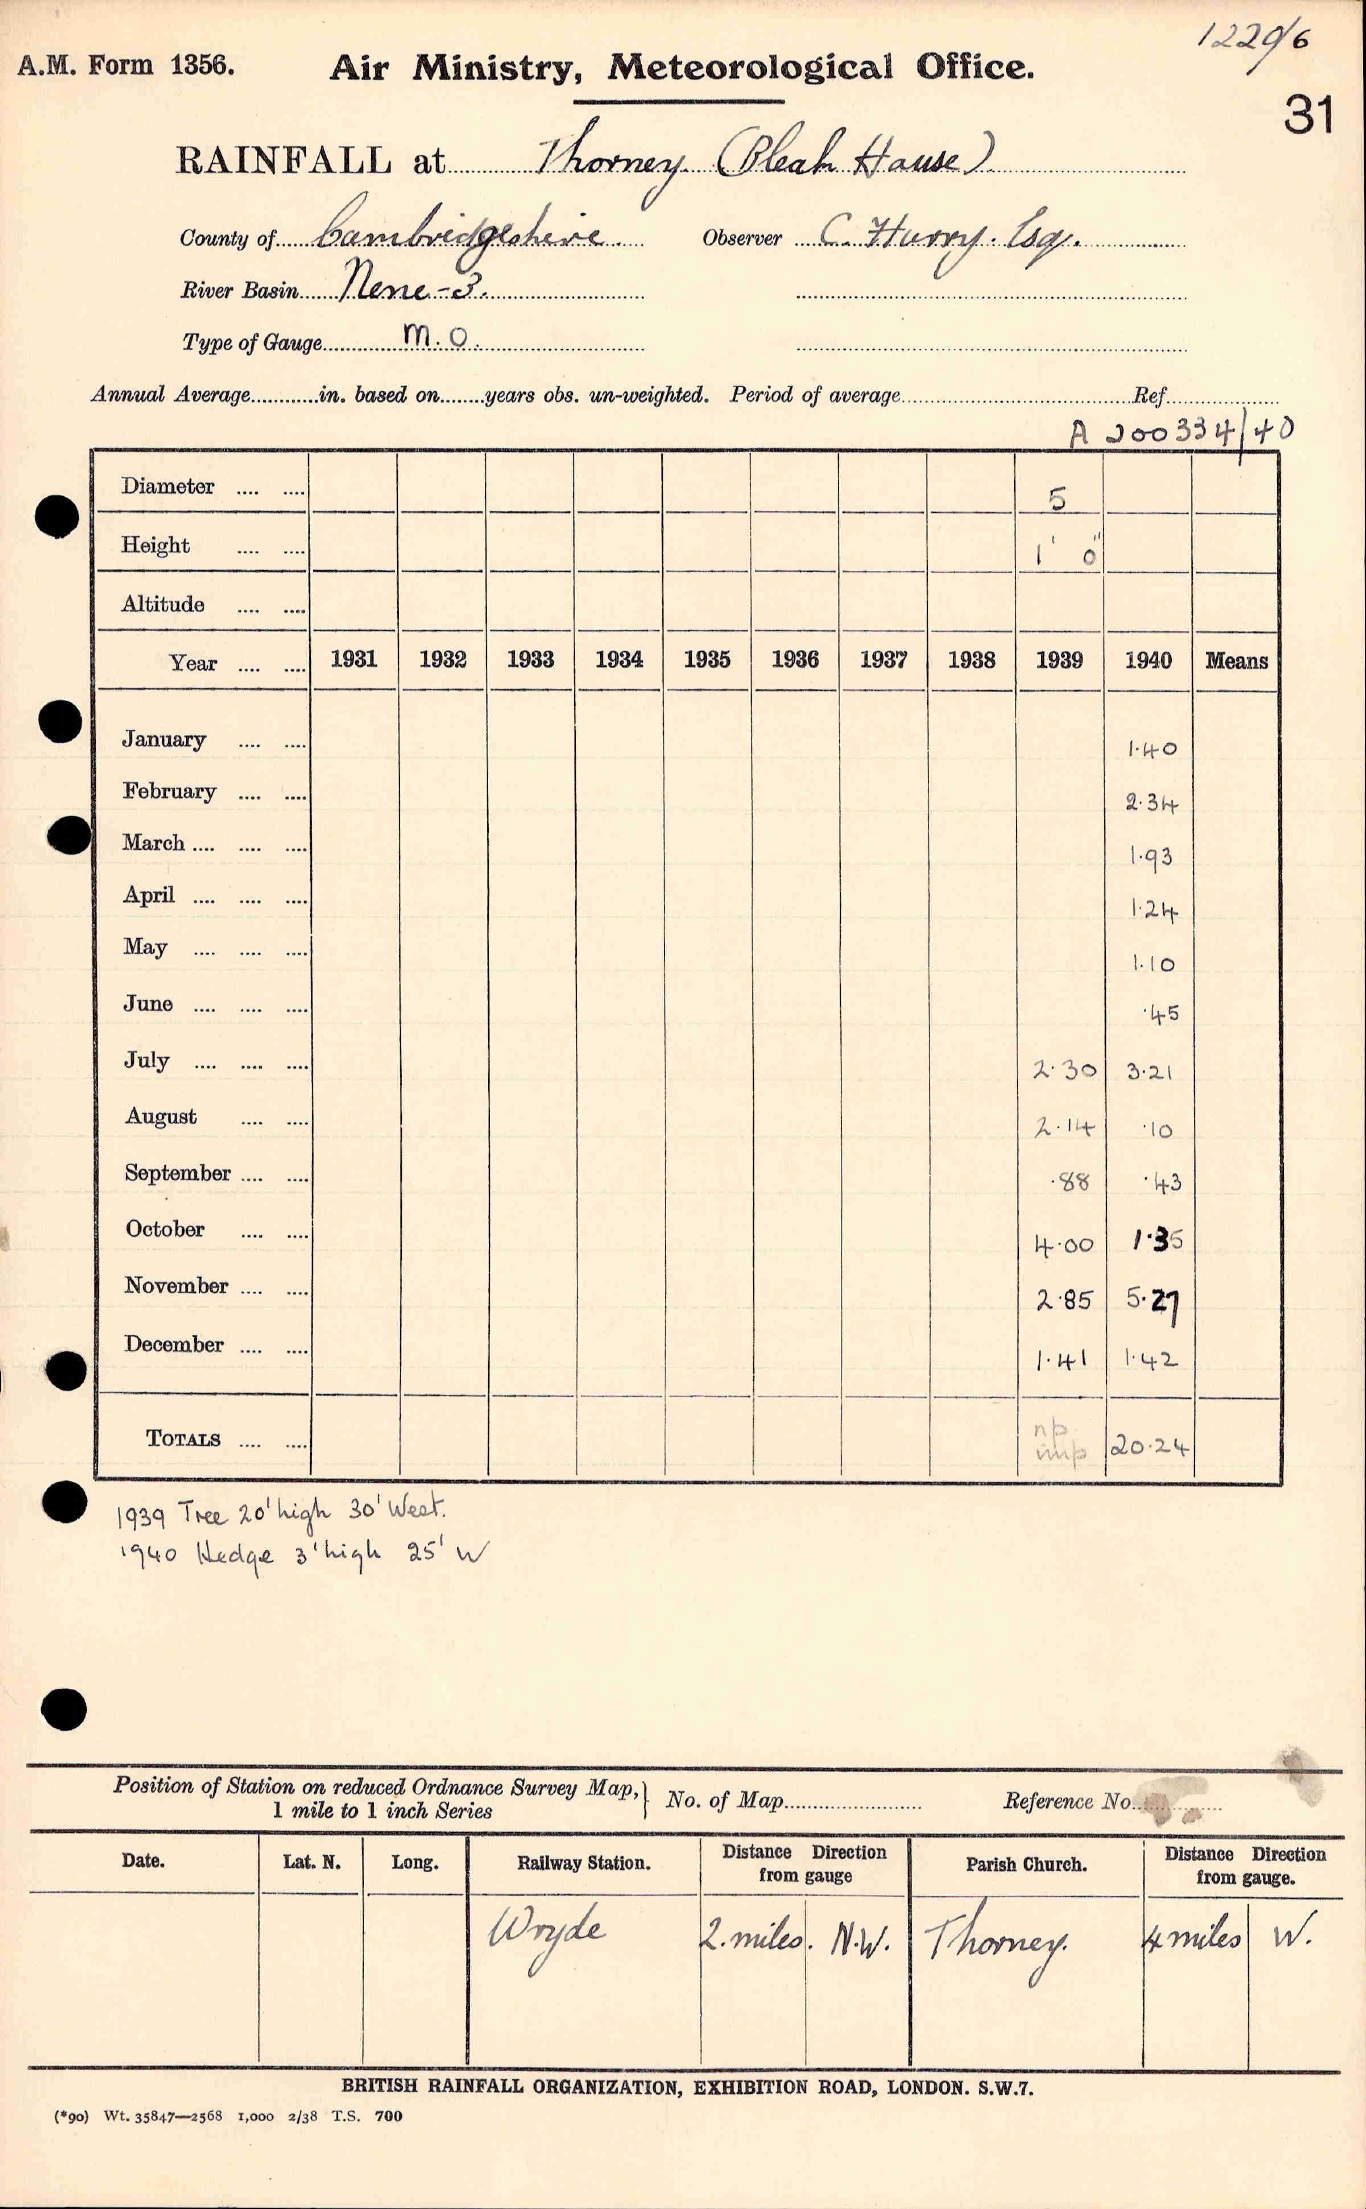 1220/6
A.M. Form 1356. Air Ministry, Meteorological Office.
31
RAINFALL at Thorney (Bleak House)
County of Cambridgeshire. Observer C. Hurry. Esq.
River Basin Nene-3.
Type of Gauge M.O.
Annual Average............in. based on........years obs. un-weighted. Period of average....................Ref....................
A 200334/40
Diameter .... .... 5
Height .... .... 1' 0"
Altitude .... ....
Year .... .... 1931 1932 1933 1934 1935 1936 1937 1938 1939 1940 Means
January .... .... 1.40
February .... .... 2.34
March .... .... .... 1.93
April .... .... .... 1.24
May .... .... .... 1.10
June .... .... .... .45
July .... .... .... 2.30 3.21
August .... .... 2.14 .10
September .... .... .88 .43
October .... .... 4.00 1.35
November .... .... 2.85 5.27
December .... .... 1.41 1.42
np
TOTALS .... .... imp 20.24
1939 Tree 20' high 30' West.
1940 Hedge 3' high 25' W
Position of Station on reduced Ordnance Survey Map,} No. of Map.................... Reference No....................
1 mile to 1 inch Series
Date. Lat. N. Long. Railway Station. Distance Direction from gauge Parish Church. Distance Direction from gauge.
Wryde 2.miles. N.W. Thorney. 4 miles W.
BRITISH RAINFALL ORGANIZATION, EXHIBITION ROAD, LONDON. S.W.7.
(*90) Wt. 35847—2568 1,000 2/38 T.S. 700